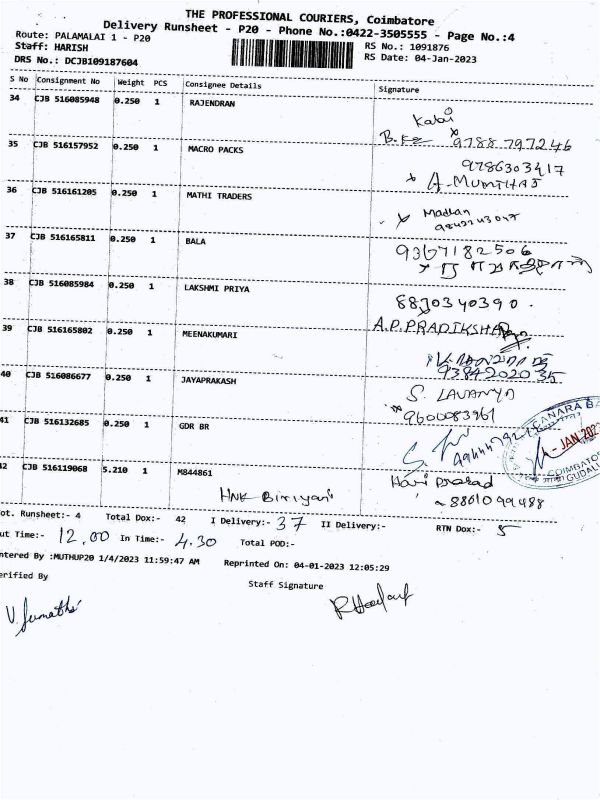 THE PROFESSIONAL COURIERS, Coimbatore
Delivery Runsheet - P20 - Phone No.:0422-3505555 - Page No.:4
Route: PALAMALAI 1 - P20
Staff: HARISH
DRS No.: DCJB109187604
RS No.: 1091876
RS Date: 04-Jan-2023
S No Consignment No Weight PCS Consignee Details Signature
34 CJB 516085948 0.250 1 RAJENDRAN
9788797246
35 CJB 516157952 0.250 1 MACRO PACKS
9786303417
A. MUMTHAJ
36 CJB 516161205 0.250 1 MATHI TRADERS
Madhan
37 CJB 516165811 0.250 1 BALA
9367182506
38 CJB 516085984 0.250 1 LAKSHMI PRIYA
8870340390.
39 CJB 516165802 0.250 1 MEENAKUMARI
A.P.PRADIKSHA
9384202035
40 CJB 516086677 0.250 1 JAYAPRAKASH
S. LAVANYA
9600083961
41 CJB 516132685 0.250 1 GDR BR
CANARA BA
- JAN 202
COIMBATO
GUDAL
42 CJB 516119068 5.210 1 M844861
HNK Biriyani
Hari Prasad
8861099488
ot. Runsheet:- 4 Total Dox:- 42 I Delivery:- 37 II Delivery:- RTN Dox:- 5
ut Time:- 12.00 In Time:- 4.30 Total POD:-
ntered By :MUTHUP20 1/4/2023 11:59:47 AM Reprinted On: 04-01-2023 12:05:29
erified By Staff Signature